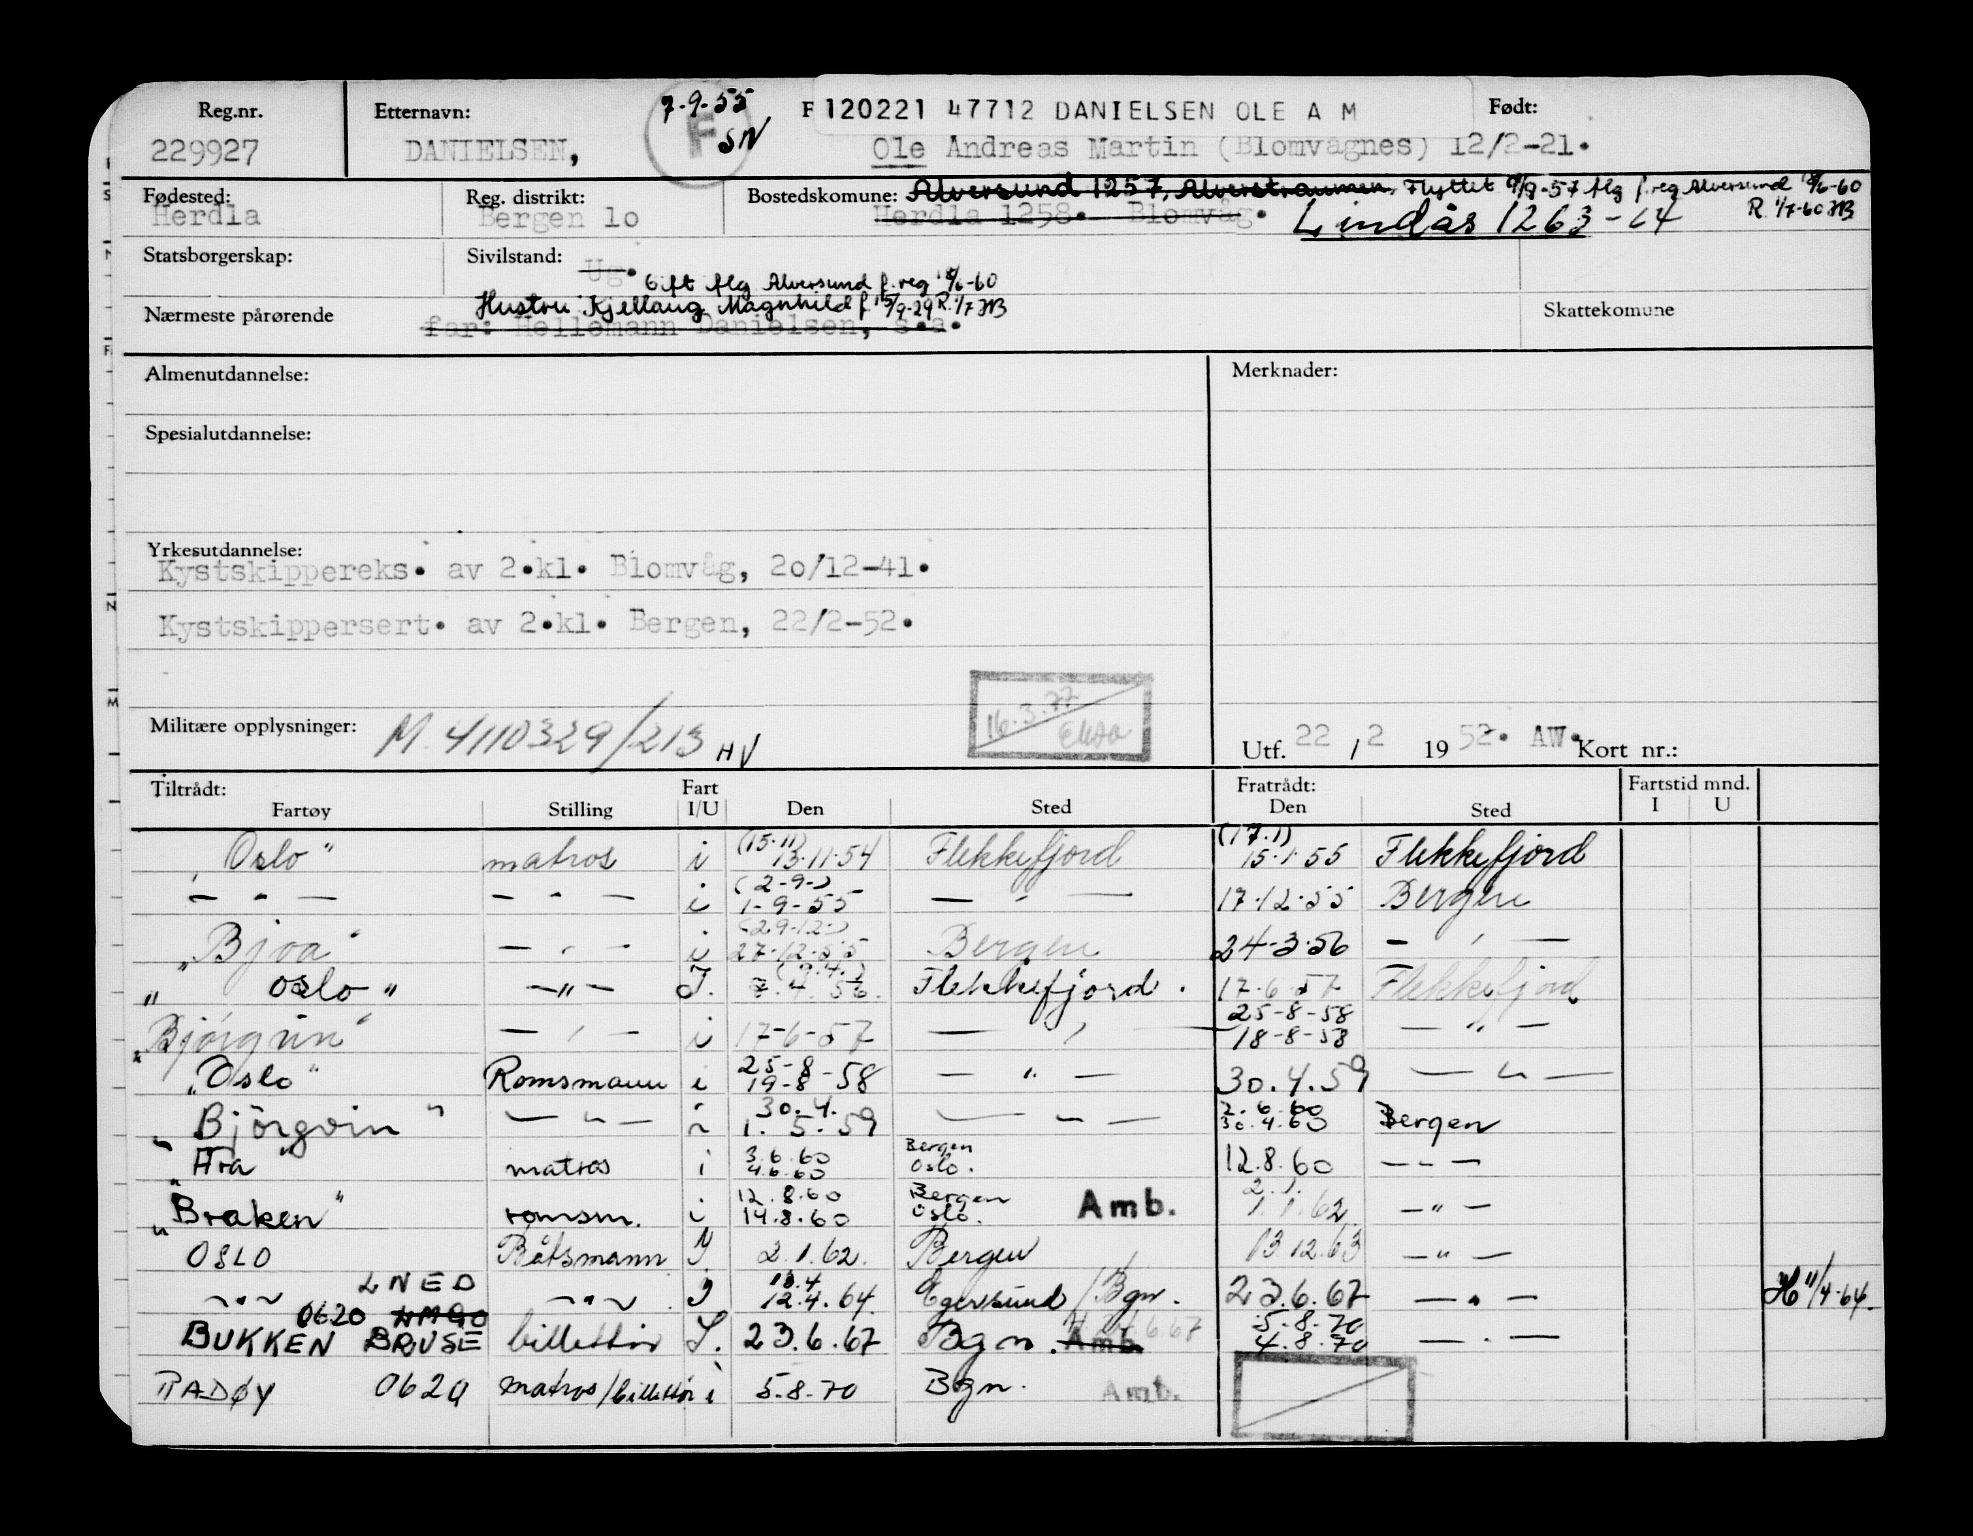 Reg.nr. Etternavn: 7-9-55 F 120221 47712 DANIELSEN OLE A M Født:
F SN
229927 DANIELSEN, Ole Andreas Martin (Blomvagnes) 12/2-21.
Fødested: Reg. distrikt: Bostedskomune: Alversund 1257, Alverstraumen, Flyttet 9/9-57 flg f.reg Alversund 18/6-60
Herdla Bergen 10 Herdla 1258. Blomvåg. Lindås 1263-64 R. 1/7-60 JB
Statsborgerskap: Sivilstand: Ug.
Gift flg Alversund f.reg 18/6-60
Nærmeste pårørende Hustru Kjellaug Magnhild f 15/9-29 R. 1/7 JB Skattekomune
far: Hellemann Danielsen, s.a.
Almenutdannelse: Merknader:
Spesialutdannelse:
Yrkesutdannelse:
Kystskippereks. av 2.kl. Blomvåg, 20/12-41.
Kystskippersert. av 2.kl. Bergen, 22/2-52.
16.3.77
Militære opplysninger: M. 4110329/213 HV
Utf. 22 / 2 19 52. AW. Kort nr.:
Tiltrådt: Fart Fratrådt: Fartstid mnd.
Fartøy Stilling I/U Den Sted Den Sted I U
"Oslo" matros i (15.11) 13.11.54 Flekkefjord (17.1) 15.1.55 Flekkefjord
— " — — " — i (2-9-) 1-9-55 — " — 17.12.55 Bergen
"Bjoa" — " — i (29.12.) 27.12.55 Bergen 24-3-56 — " —
"Oslo" — " — I. (9.4.) 4. 56. Flekkefjord. 17.6.57 Flekkefjord
"Bjørgvin" — " — i 17-6-57 — " — 25-8-58 18-8-58 — " —
"Oslo" Romsmann i 25-8- 19-8-58 — " — 30.4.59 — " —
"Bjørgvin" — " — i 30.4. 1. 5. 59 — " — 2.6.60 30.4.60 Bergen
"Ara" matros i 3.6.60 4.6.60 Bergen Oslo. 12.8.60 — " —
"Braken" romsm. i 12.8.60 14.8.60 Bergen Oslo. Amb. 2.1. 1.1.62 — " —
OSLO Båtsmann I 2.1.62. Bergen 13.12.63 — " —
— " — LNED — " — I 13.4 12.4.64. Egersund / Bgn. 23.6.67 — " — H 11/4-64.
0620 LMGO
BUKKEN BRUSE billettør I. 23.6.67 Bgn. Amb. 5.8.70 4.8.70 — " —
RADØY 0620 matros/billettør i 5.8.70 Bgn. Amb.